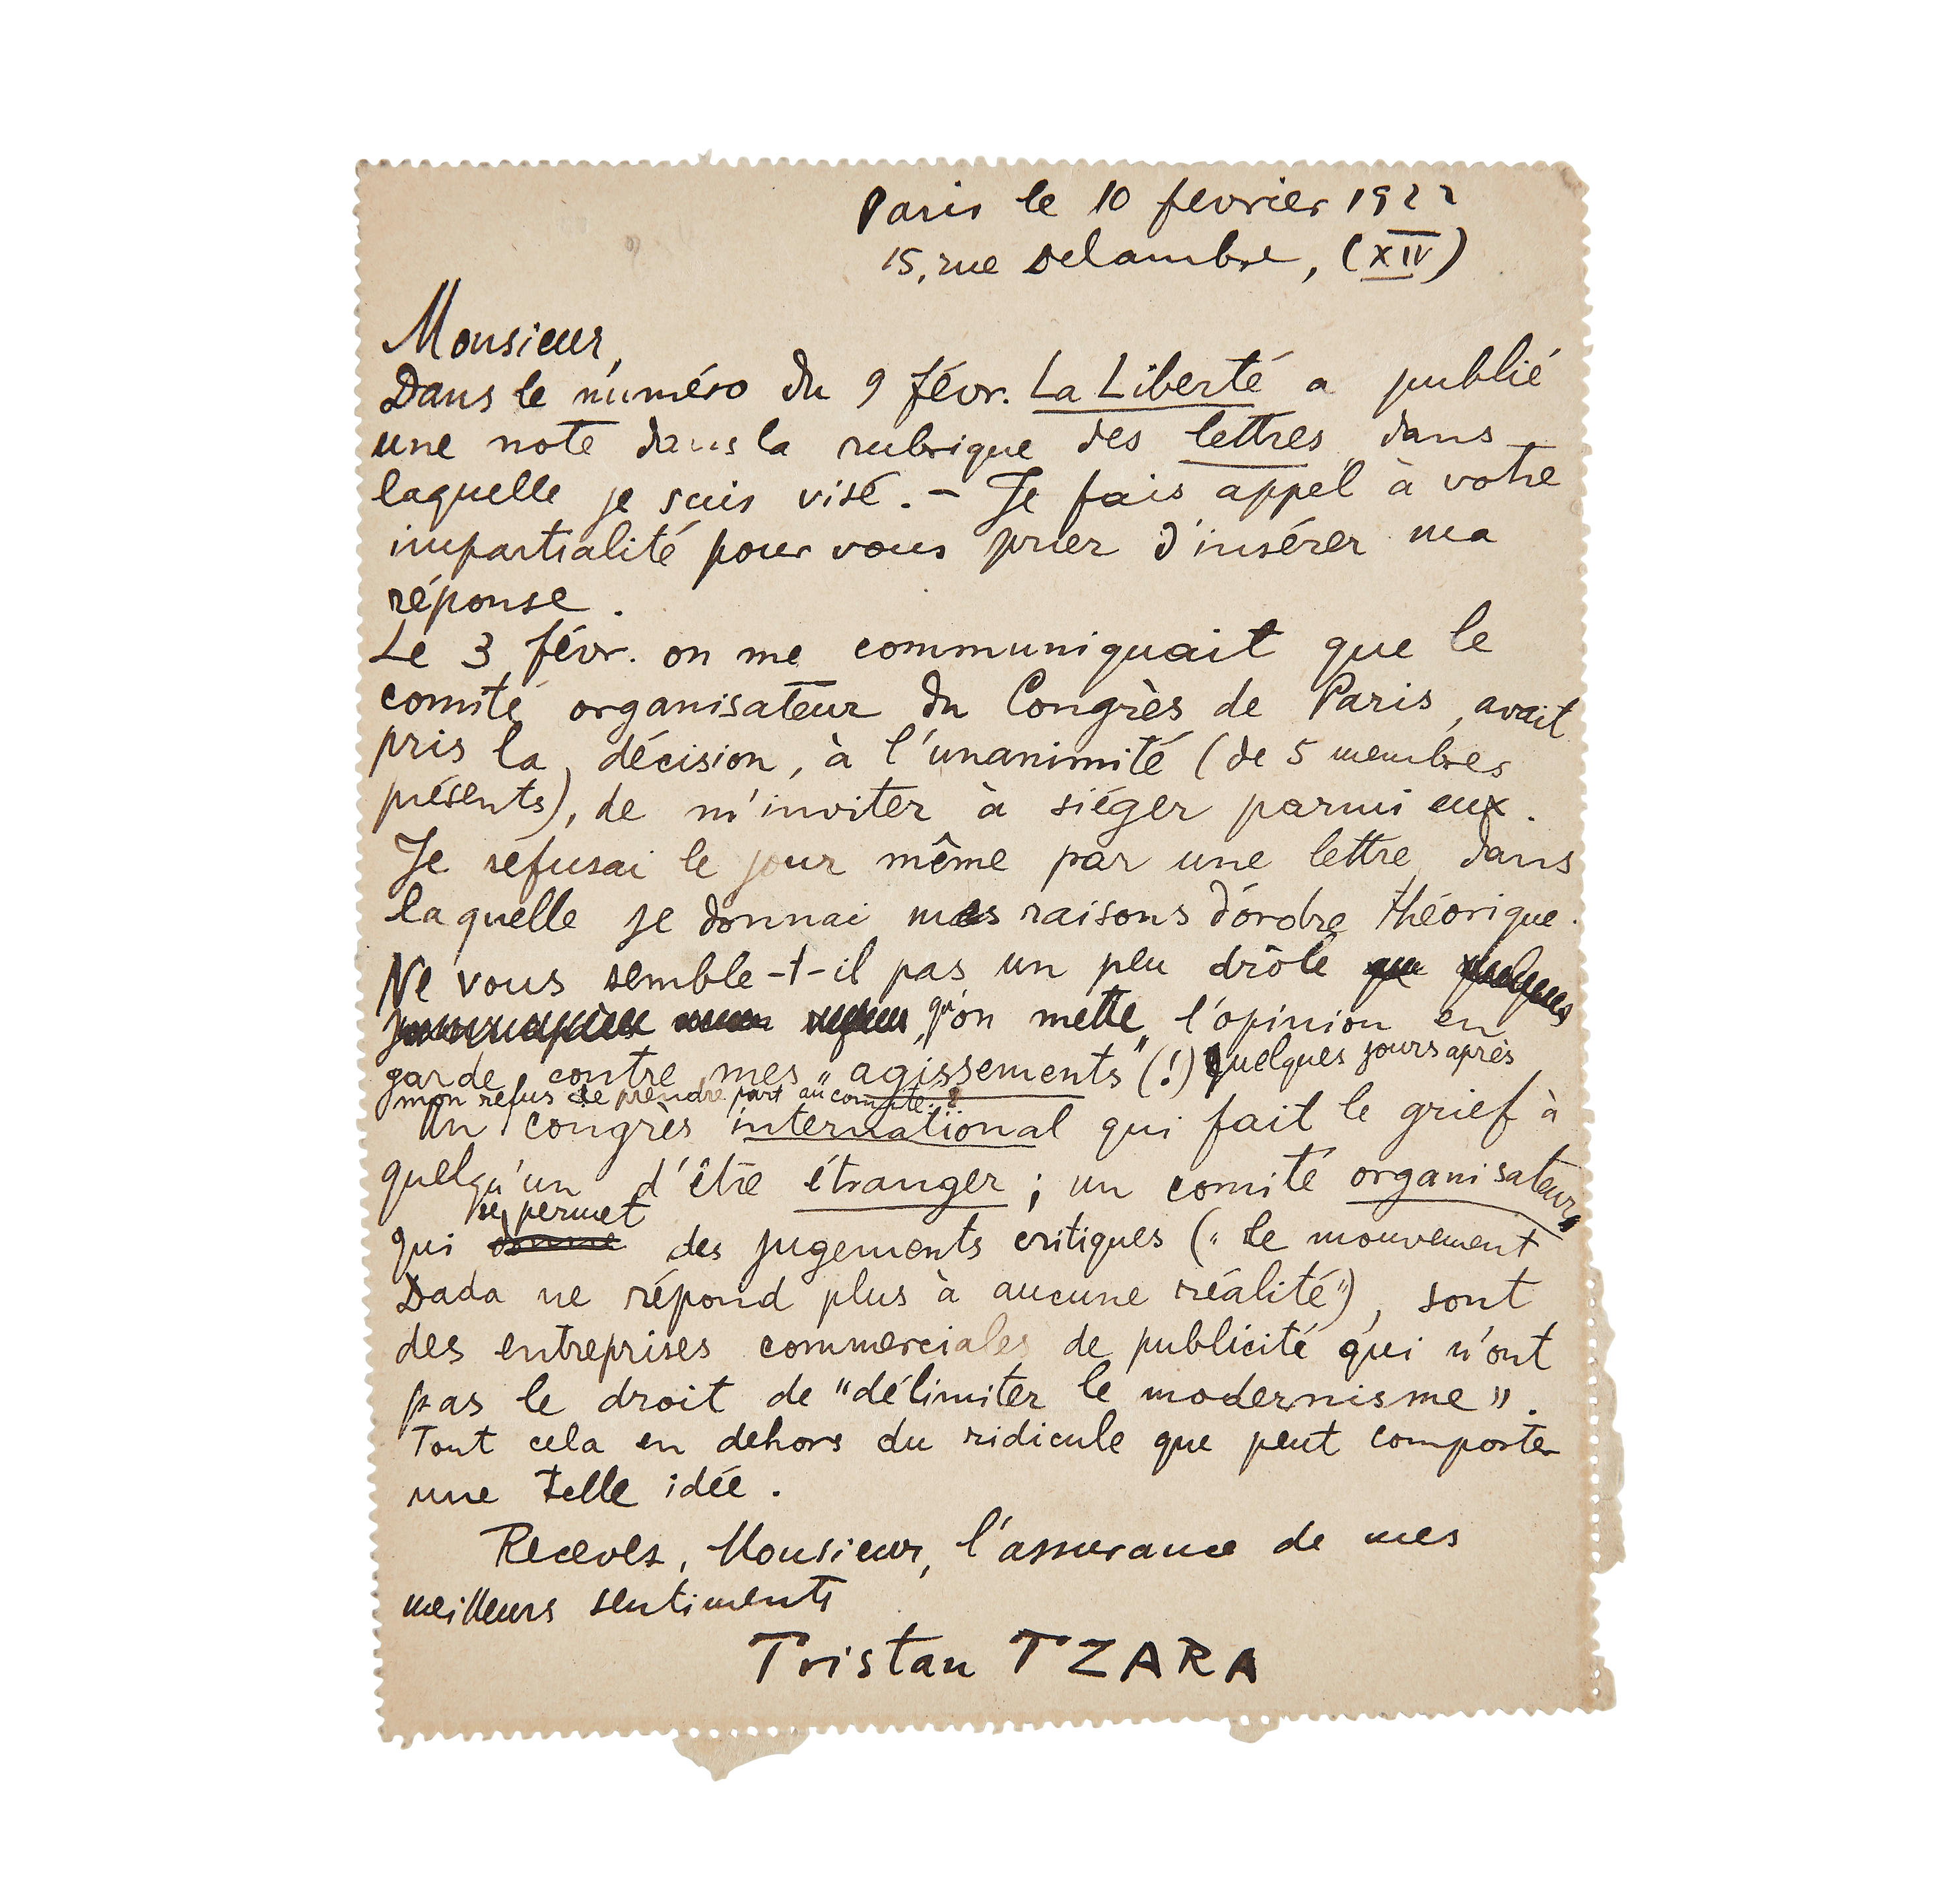 Paris le 10 fevrier 1922
15, rue Delambre, (XIV)
Monsieur,
Dans le numéro du 9 févr. La Liberté a publié
une note dans la rubrique des lettres, dans
laquelle je suis visé. – Je fais appel à votre
impartialité pour vous prier d'insérer ma
réponse.
Le 3 févr. on me communiquait que le
comité organisateur du Congrès de Paris, avait
pris la décision, à l'unanimité (de 5 membres
présents), de m'inviter à siéger parmi eux.
Je refusai le jour même par une lettre dans
laquelle je donnai mes raisons d'ordre théorique.
Ne vous semble-t-il pas un peu drôle que quelques
qu'on mette l'opinion en
garde contre mes "agissements" (!) Quelques jours après
mon refus de prendre part au comité..?
Un congrès international qui fait le grief à
quelqu'un d'être étranger; un comité organisateur,
se permet
qui donne des jugements critiques ("le mouvement
Dada ne répond plus à aucune réalité"), sont
des entreprises commerciales de publicité qui n'ont
pas le droit de "délimiter le modernisme".
Tout cela en dehors du ridicule que peut comporter
une telle idée.
Recevez, Monsieur, l'assurance de mes
meilleurs sentiments
Tristan TZARA